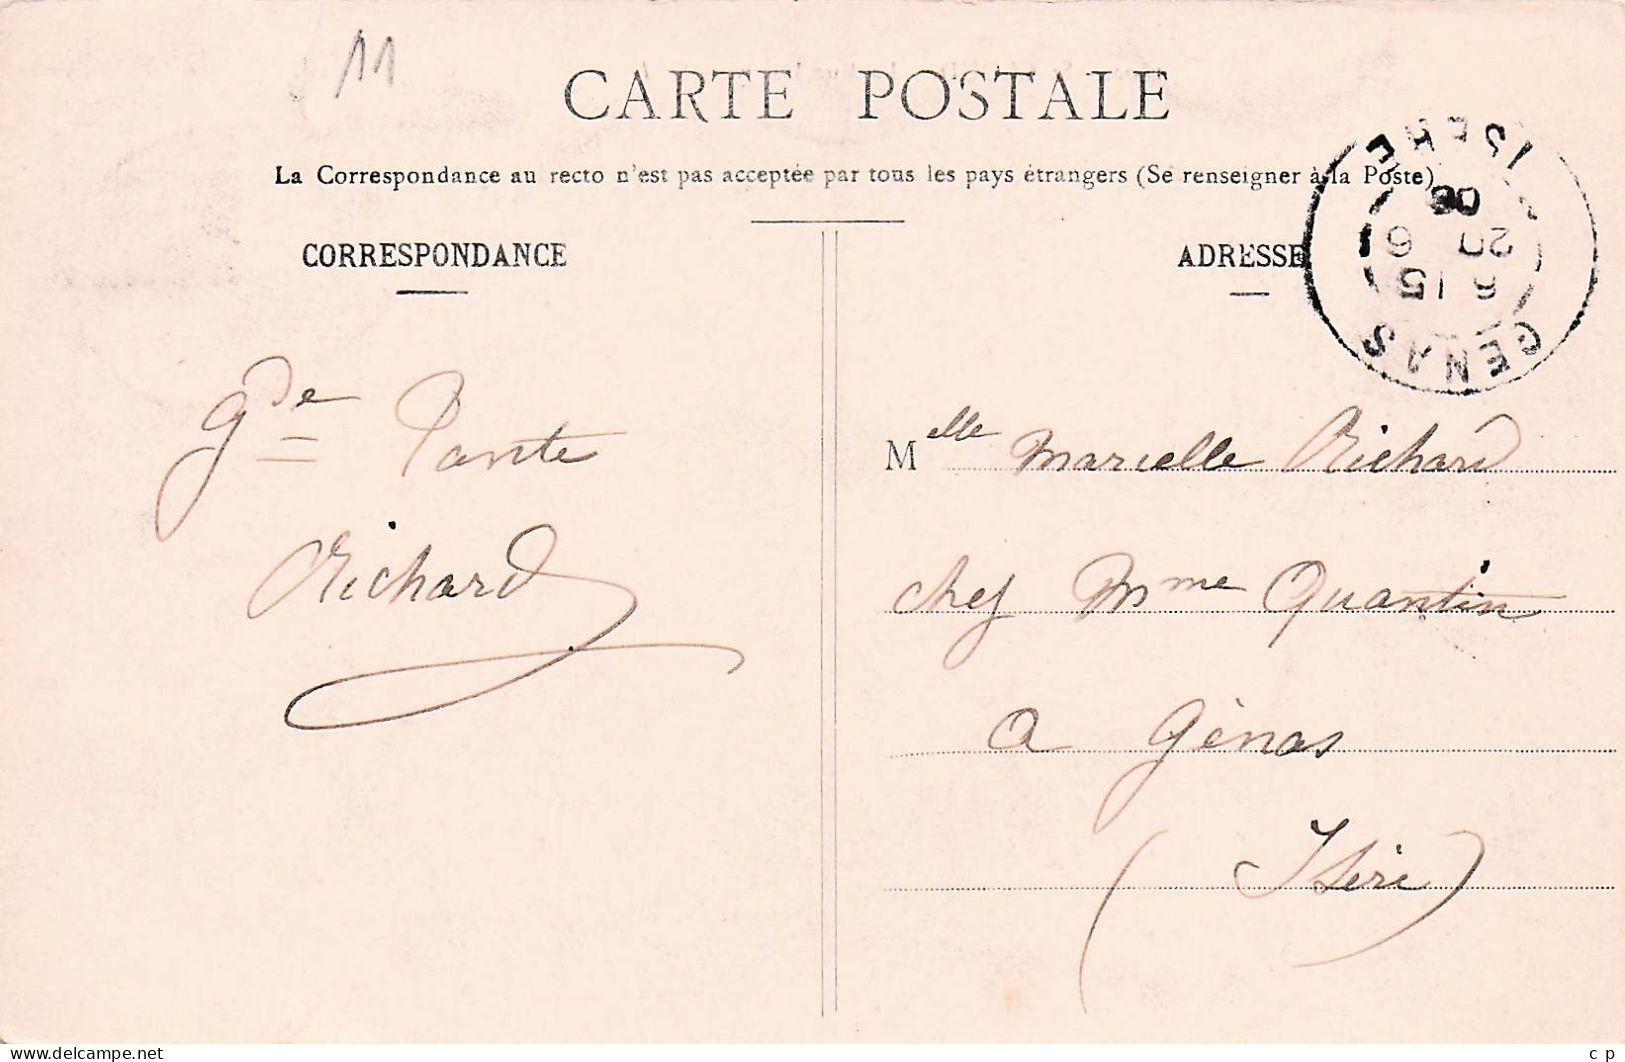 11
CARTE POSTALE
La Correspondance au recto n'est pas acceptée par tous les pays étrangers (Se renseigner à la Poste)
CORRESPONDANCE
ADRESSE
GENAS
8 15
20 6
06
ISERE
Gde Tante
Richard
Melle Marcelle Richard
chez Mme Quantin
a Génas
(Isère)
delcampe.net
c p